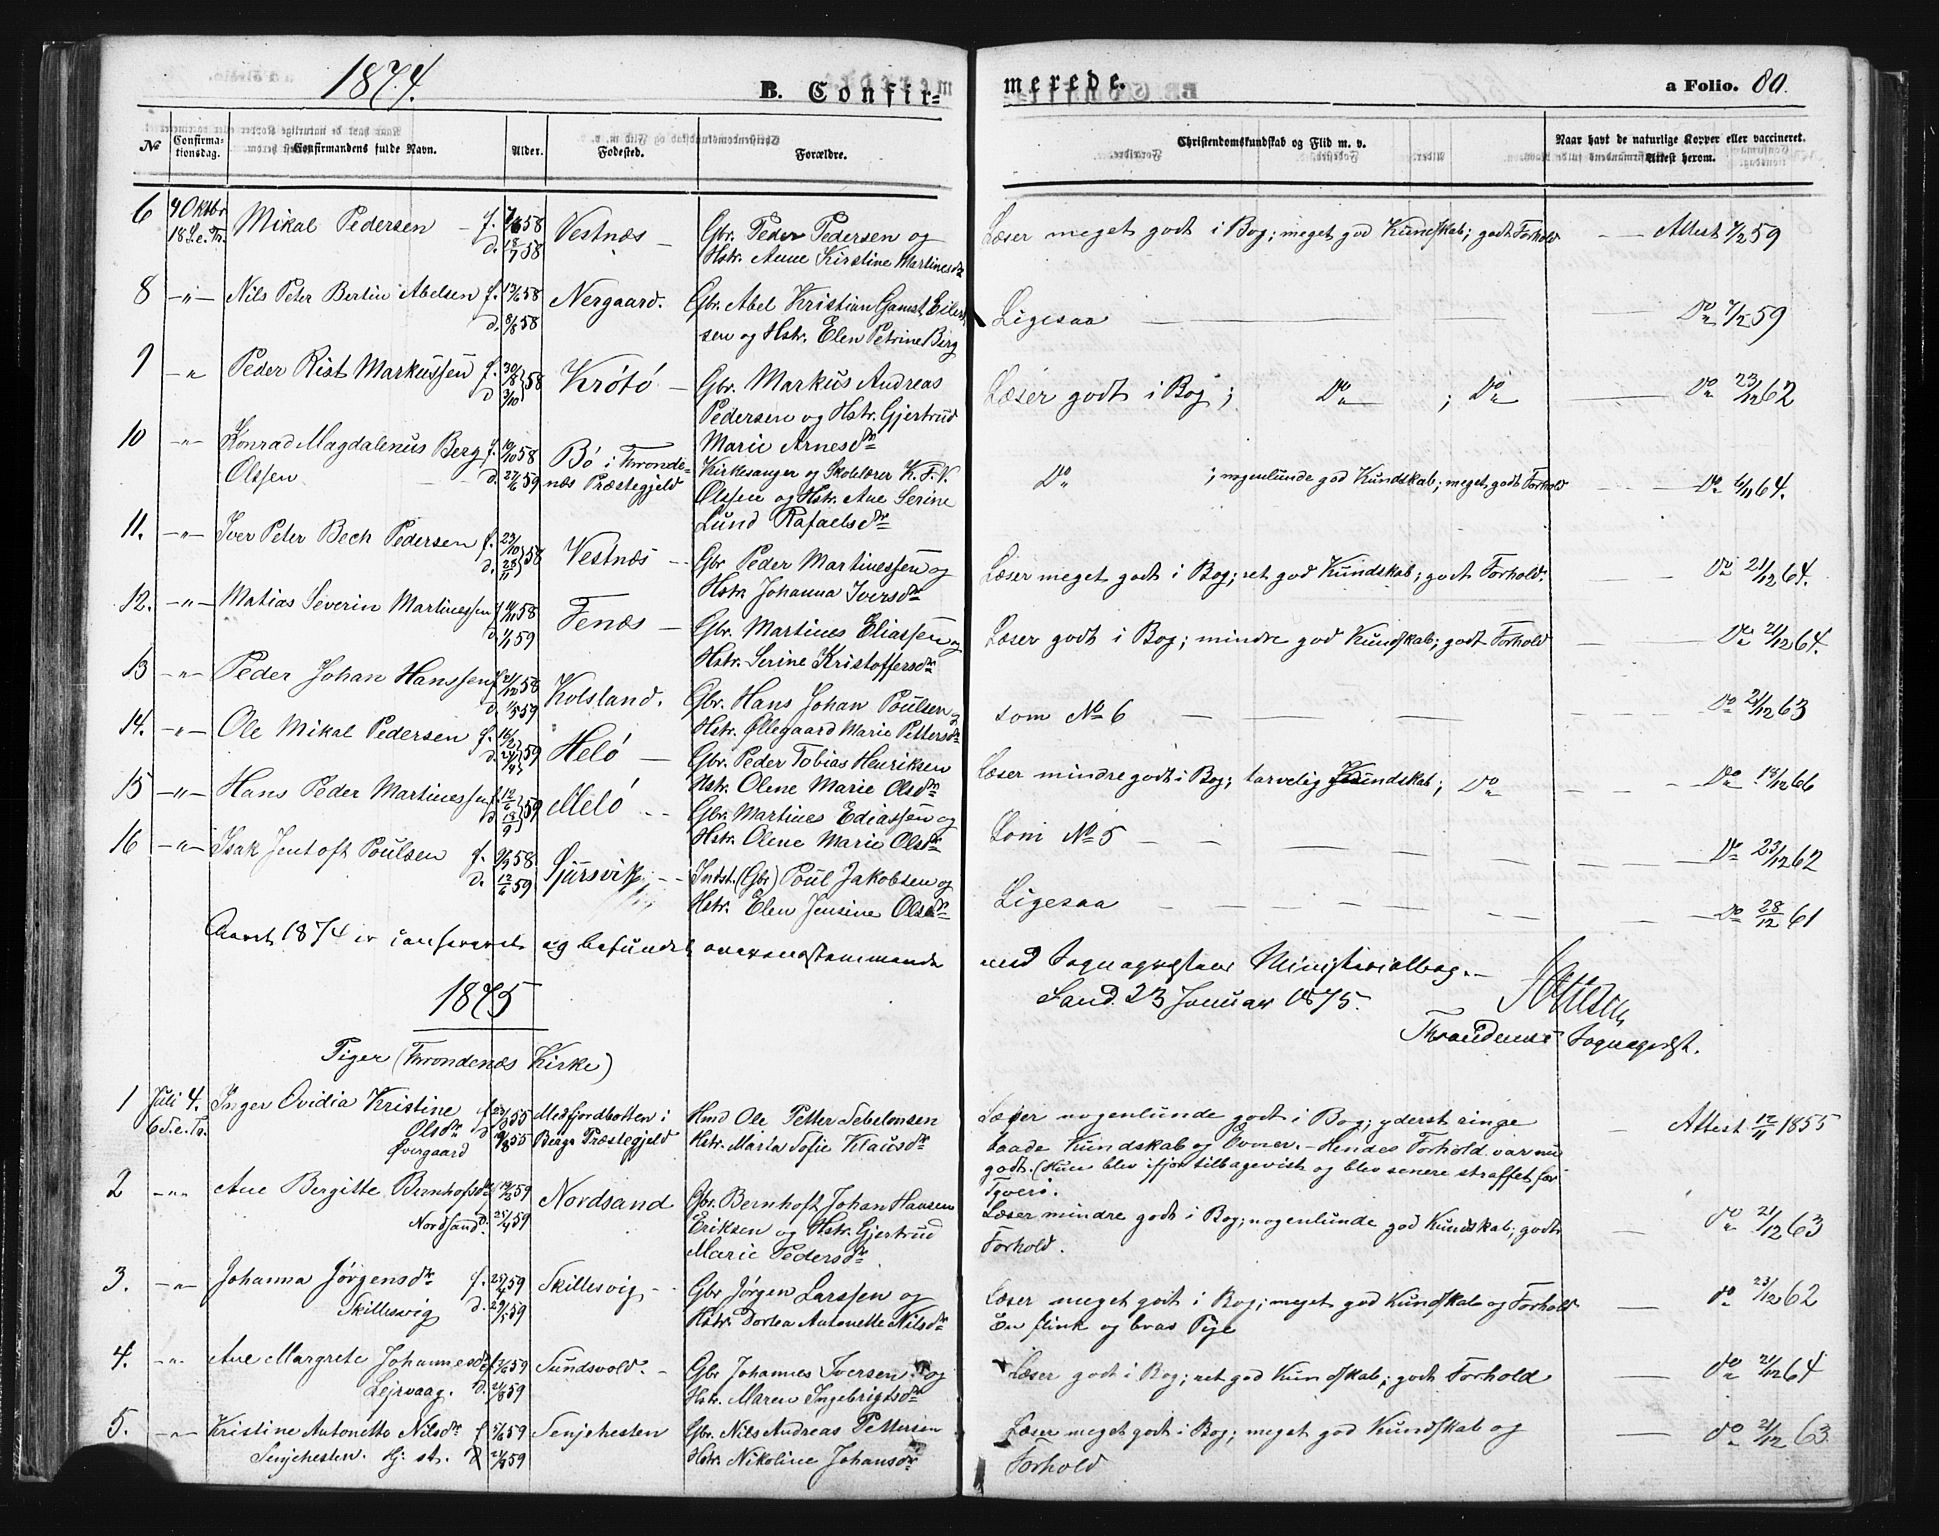 1874.
B. Confir-
merede.
a Folio. 80.
No
Confirma-
tionsdag.
Confirmandens fulde Navn.
Alder.
Fødested.
Forældre.
Christendomskundskab og Flid m. v.
Naar havt de naturlige Kopper eller vaccineret.
Attest herom.
6 4 Oktbr 18 S.e.Tr. Mikal Pedersen f. 58 d. 18/7 58 Vestnæs Gbr. Peder Pedersen og
Hstr. Anne Kirstine Martinesdr
Læser meget godt i Bog; meget god Kundskab; godt Forhold Attest 7/2 59
8 -"- Nils Peter Bertin Abelsen f. 58 d. 8/8 58 Nergaard. Gbr. Abel Kristian Gamst Eilert-
sen og Hstr. Elen Petrine Berg
Ligesaa Do 7/2 59
9 " Peder Rist Markussen f. 30/8 d. 3/10 58 Krøtø Gbr. Markus Andreas
Pedersen og Hstr. Gjertrud
Marie Arnesdr
Læser godt i Bog; Do ; Do Do 23/12 62
10 -"- Konrad Magdalenus Berg f. 19/10 58 Bø i Thronde-
Olssen d. 27/6 59 næs Præstegjeld
Kirkesanger og Skolelærer K. F. V.
Olssen og Hstr. Ane Serine
Lund Rafaelsdr
Do ; nogenlunde god Kundskab; meget godt Forhold Do 64.
11. -"- Iver Peter Bech Pedersen f. 23/10 d. 28/11 58 Vestnæs Gbr Peder Martinessen og
Hstr Johanna Iversdr
Læser meget godt i Bog; ret god Kundskab; godt Forhold. Do 21/12 64.
12. -"- Matias Severin Martinessen f. 58 d. 1/1 59 Fenæs Gbr. Martines Eliassen og
Hstr. Serine Kristoffersdr
Læser godt i Bog; mindre god Kundskab; godt Forhold Do 21/12 64.
13 -"- Peder Johan Hanssen f. 21/12 58 d. 1/5 59 Kolsland. Gbr. Hans Johan Poulsen og
Hstr. Øllegaard Marie Pettersdr
som No 6 Do 21/12 63
14. -"- Ole Mikal Pedersen f. 16/2 d. 24/4 59 Helø Gbr. Peder Tobias Henriksen
Hstr. Oline Marie Olsdr
Læser mindre godt i Bog; tarvelig Kundskab; Do Do 18/12 66
15 -"- Hans Peder Martinessen f. 12/6 d. 13/9 59 Melø Gbr. Martines Ediassen og
Hstr. Oline Marie Olsdr
Som No 5 Do 23/12 62
16 -"- Isak Jentoft Poulsen f. 58. d. 12/6 59 Gjursvik Indst. (Gbr) Poul Jakobsen og
Hstr. Elen Jensine Olsdr
Ligesaa Do 28/12 61
Aaret 1874 er confereret og befundet overensstemmende
med Sogneprestens Ministerialbog.
Sand. 23 Januar 1875.
Throndenæs Sogneprest.
1875
Piger (Throndenæs Kirke)
1 Juli 4. 6 S.e.Tr. Inger Ovidia Kristine
Olsdr
Øvergaard
f. 55 d. 55 Mefjordbotten i
Bergs Præstegjeld
Hmd Ole Petter Sebelonsen
Hstr. Marta Sofie Klausdr
Læser nogenlunde godt i Bog; yderst ringe
baade Kundskab og Evner. - Hendes Forhold var nu
godt. (Hun blev ifjor tilbagevist og blev senere straffet for
Tyveri.
Attest 12/11 1855
2 -"- Ane Bergitte Bernhofsdr
Nordsand.
59 d. 25/4 59 Nordsand Gbr. Bernhoft Johan Hansen
Eriksen og Hstr. Gjertrud
Marie Pedersdr
Læser mindre godt i Bog; nogenlunde god Kundskab; godt
Forhold.
Do 21/12 63
3. -"- Johanna Jørgensdr
Skillesvig
f. 25/4 59 d. 29/5 59 Skillesvig Gbr Jørgen Larssen og
Hstr. Dortea Antonette Nilsdr
Læser meget godt i Bog; meget god Kundskab og Forhold
En flink og brav Pige
do 23/12 62
4. -"- Ane Margrete Johannesdr
Lejrvaag.
59 d. 21/8 59 Sundsvold. Gbr Johannes Iversen og
Hstr. Maren Ingebrigtsdr
Læser godt i Bog; ret god Kundskab; godt Forhold
do 21/12 64
5. -"- Kristine Antonette Nilsdr
Senjehesten. Hj. st.
f 5/6 59 d 59 Senjehesten Gbr. Nils Andreas Pettersen
Hstr. Nikoline Johansdr
Læser meget godt i Bog; meget god Kundskab og
Forhold
do 21/12 63